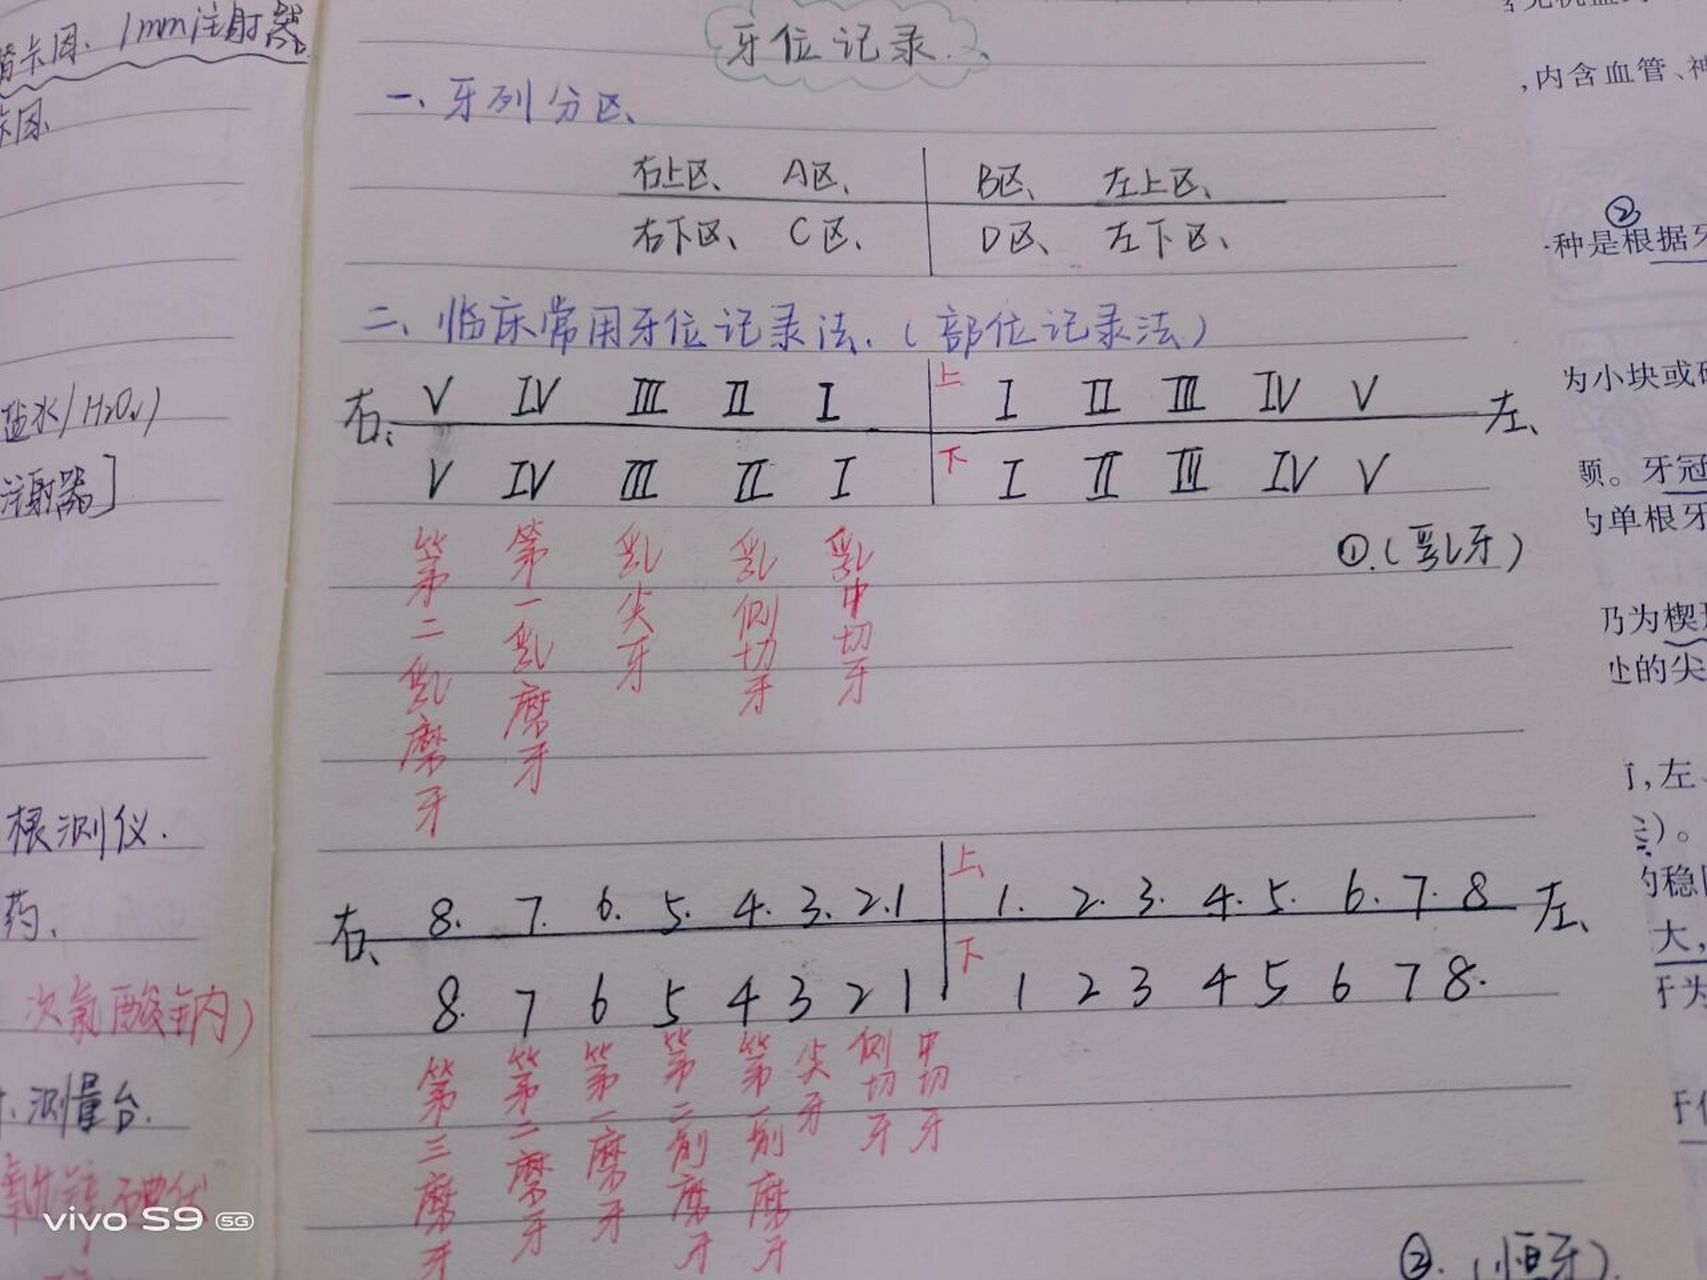 卡因、1mm注射器
盐水/H2O2)
注射器]
根测仪.
药、
次氯酸钠内)
测量台.
vivo S9 5G
牙位记录、
一、牙列分区、
右上区、 A区、 B区、 左上区、
右下区、 C区、 D区、 左下区、
二、临床常用牙位记录法.(部位记录法)
右、 V IV III II I 上 I II III IV V 左、
V IV III II I 下 I II III IV V
第二乳磨牙 第一乳磨牙 乳尖牙 乳侧切牙 乳中切牙
①.(乳牙)
右、 8. 7. 6. 5. 4. 3. 2.1 上 1. 2. 3. 4. 5. 6. 7. 8 左、
8. 7 6 5 4 3 2 1 下 1 2 3 4 5 6 7 8.
第三磨牙 第二磨牙 第一磨牙 第二前磨牙 第一前磨牙 尖牙 侧切牙 中切牙
②.(恒牙)
,内含血管、神
②
种是根据牙
为小块或
颈。牙冠
单根牙
乃为楔形
的尖
,左
)。
的稳
大,